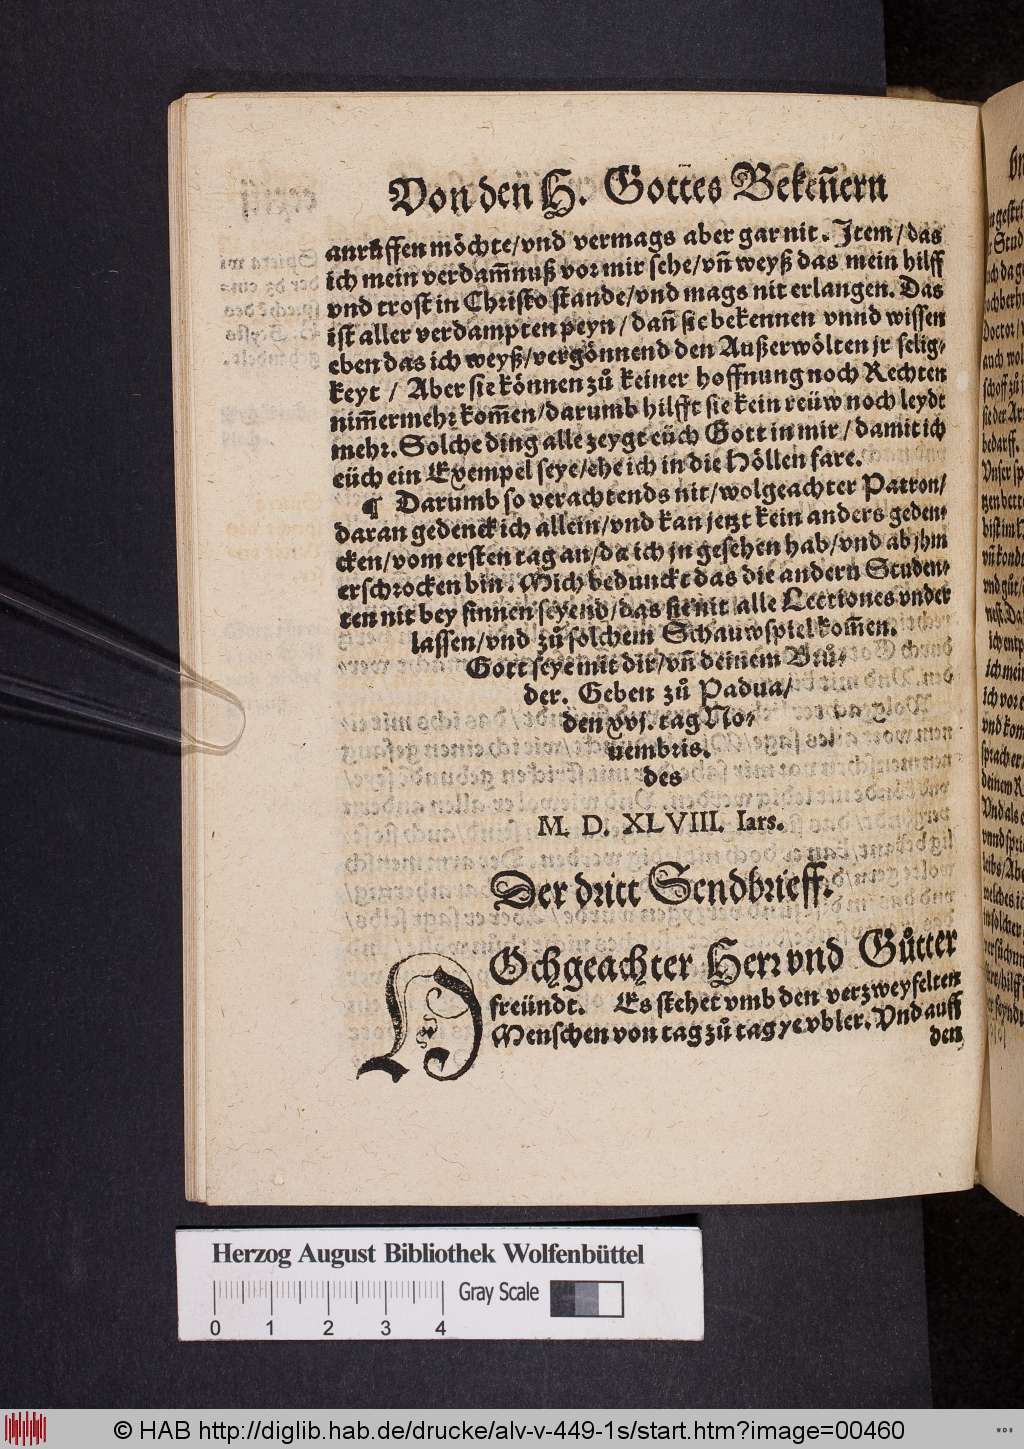 Von den H. Gottes Bekeñern
anrůffen möchte/vnd vermags aber gar nit. Item/das
ich mein verdam̃nuß vor mir sehe/vñ weyß das mein hilff
vnd trost in Christo stande/vnd mags nit erlangen. Das
ist aller verdampten peyn/dañ sie bekennen vnnd wissen
eben das ich weyß/vergönnend den Außerwölten jr selig-
keyt / Aber sie können zů keiner hoffnung noch Rechten
nim̃ermehr kom̃en/darumb hilfft sie kein reüw noch leydt
mehr. Solche ding alle zeygt eüch Gott in mir/damit ich
eüch ein Exempel seye/ehe ich in die Höllen fare.
¶ Darumb so verachtends nit/wolgeachter Patron/
daran gedenck ich allein/vnd kan jetzt kein anders geden-
cken/vom ersten tag an/da ich jn gesehen hab/vnd ab jhm
erschrocken bin. Mich bedunckt das die andern Studen-
ten nit bey sinnen seyend/das sie nit alle Lectiones vnder
lassen/vnd zů solchem Schauwspiel kom̃en.
Gott seye mit dir/vñ deinem Brů-
der. Geben zů Padua/
den xvj. tag No-
uembris.
des
M. D. XLVIII. Iars.
Der dritt Sendbrieff.
HOchgeachter Herr vnd Gůtter
freündt. Es stehet vmb den verzweyfelten
Menschen von tag zů tag ye vbler. Vnd auff
den
Herzog August Bibliothek Wolfenbüttel
Gray Scale
0 1 2 3 4
© HAB http://diglib.hab.de/drucke/alv-v-449-1s/start.htm?image=00460